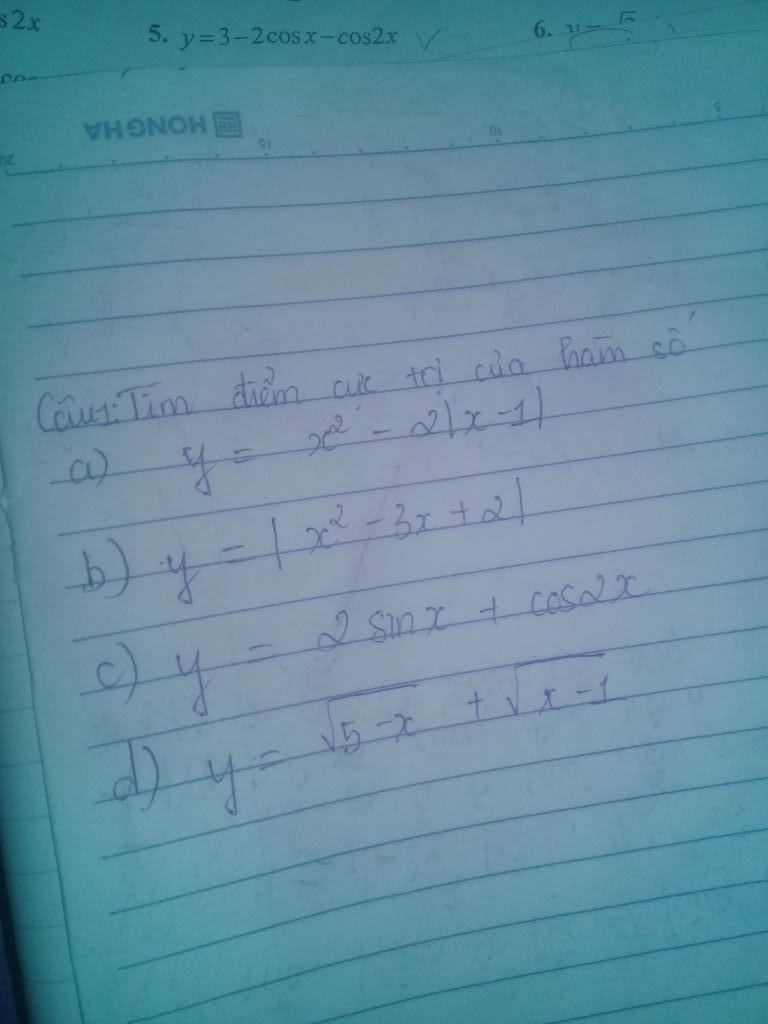 s2x
5. y=3−2cosx−cos2x
6.
HONG HA
15
10
5
20
Câu1: Tìm điểm cực trị của hàm số
a) y = x² − 2|x−1|
b) y = |x² − 3x + 2|
c) y = 2 sin x + cos2x
d) y = √5−x + √x−1